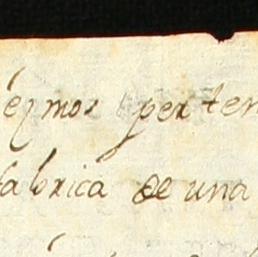 ézmos perten
fabrica de una